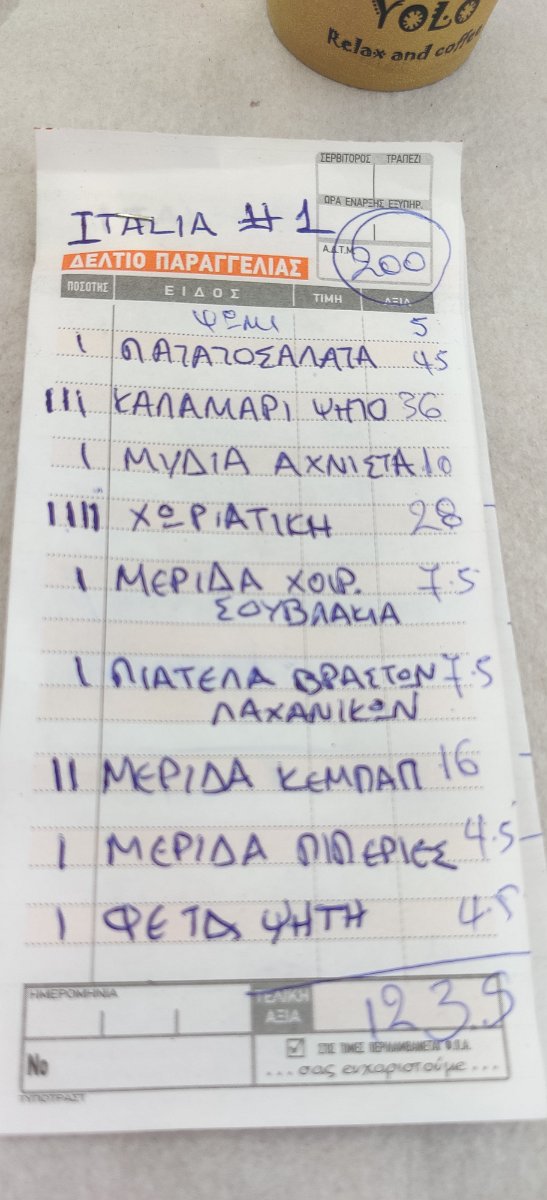 YOLO
Relax and coffee
ΣΕΡΒΙΤΟΡΟΣ ΤΡΑΠΕΖΙ
ΩΡΑ ΕΝΑΡΞΗΣ ΕΞΥΠΗΡ.
ITALIA #1
Α.Δ.Τ.Μ. 200
ΔΕΛΤΙΟ ΠΑΡΑΓΓΕΛΙΑΣ
ΠΟΣΟΤΗΣ ΕΙΔΟΣ ΤΙΜΗ ΑΞΙΑ
ΨΩΜΙ 5
Ι ΠΑΤΑΤΟΣΑΛΑΤΑ 45
ΙΙΙ ΚΑΛΑΜΑΡΙ ΨΗΤΟ 36
Ι ΜΥΔΙΑ ΑΧΝΙΣΤΑ 10
ΙΙΙΙ ΧΩΡΙΑΤΙΚΗ 28
Ι ΜΕΡΙΔΑ ΧΟΙΡ. 7.5
ΣΟΥΒΛΑΚΙΑ
Ι ΠΙΑΤΕΛΑ ΒΡΑΣΤΩΝ 7.5
ΛΑΧΑΝΙΚΩΝ
ΙΙ ΜΕΡΙΔΑ ΚΕΜΠΑΠ 16
Ι ΜΕΡΙΔΑ ΠΙΠΕΡΙΕΣ 4.5
Ι ΦΕΤΑ ΨΗΤΗ 4.5
ΗΜΕΡΟΜΗΝΙΑ
ΤΕΛΙΚΗ ΑΞΙΑ 123.5
ΣΤΙΣ ΤΙΜΕΣ ΠΕΡΙΛΑΜΒΑΝΕΤΑΙ Φ.Π.Α.
No ...σας ευχαριστούμε...
ΤΥΠΟΤΡΑΣΤ